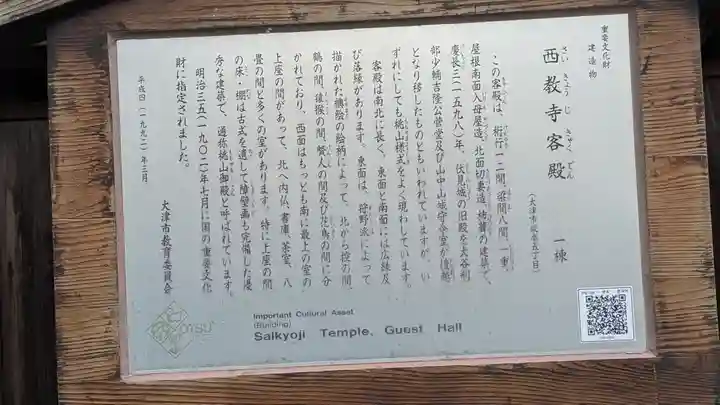 重要文化財
建造物
西教寺客殿 一棟
さいきょうじきゃくでん
(大津市坂本五丁目)
この客殿は、桁行一二間、梁間八間、一重、
屋根南面入母屋造、北面切妻造、杮葺の建築で、
慶長三(一五九八)年、伏見城の旧殿を大谷刑
部少輔吉隆公菅堂及び山中山城守令室が檀越
となり移したものともいわれていますが、い
ずれにしても桃山様式をよく現わしています。
客殿は南北に長く、東面と南面には広縁及
び落縁があります。東面は、狩野派によって
描かれた襖絵の絵柄によって、北から控の間、
鶴の間、猿猴の間、賢人の間及び花鳥の間に分
かれており、西面はもっとも南に最上の室の
上座の間があって、北へ内仏、書庫、茶室、八
畳の間と多くの室があります。特に上座の間
の床・棚は古式を遺して障壁画も完備した優
秀な建築で、通称桃山御殿と呼ばれています。
明治三五(一九〇二)年七月に国の重要文化
財に指定されました。
平成四(一九九二)年三月
大津市教育委員会
Important Cultural Asset
(Building)
Saikyoji Temple, Guest Hall
OTSU